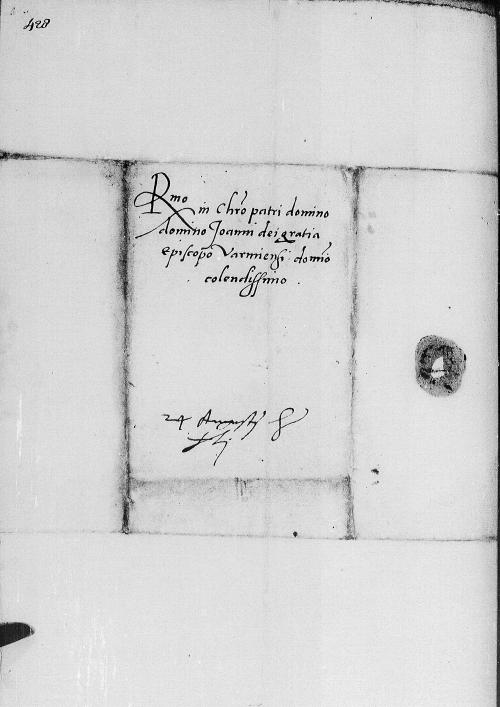 428
Rmo in Chro patri domino
domino Joanni dei gratia
Episcopo Varmiensi domino
colendissimo .
24 Augusti